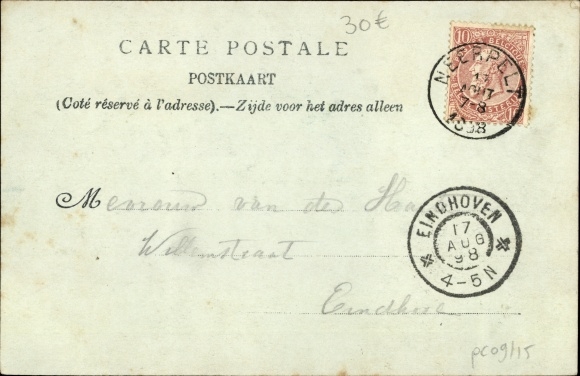 30€
CARTE POSTALE
POSTKAART
(Coté réservé à l'adresse).—Zijde voor het adres alleen
10
BELGIQUE
NEERPELT
17
AOUT
7-8
1898
Mevrouw van der
Willemstraat
EINDHOVEN
17
AUG
98
4-5N
pc09/15